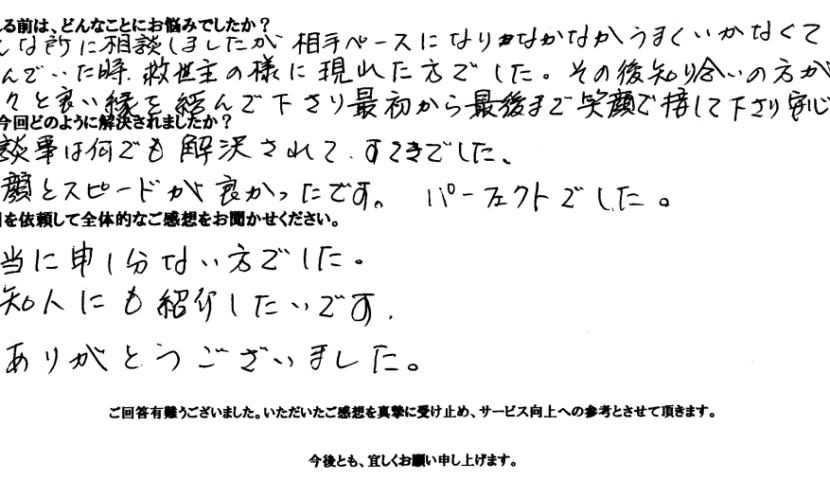 る前は、どんなことにお悩みでしたか？
な所に相談しましたが相手ペースになりなかなかうまくいかなくて
んでいた時、救世主の様に現れた方でした。その後知り合いの方が
々と良い縁を結んで下さり最初から最後まで笑顔で接して下さり安心
今回どのように解決されましたか？
談事は何でも解決されて、すてきでした、
顔とスピードが良かったです。 パーフェクトでした。
を依頼して全体的なご感想をお聞かせください。
当に申し分ない方でした。
知人にも紹介したいです.
ありがとうございました。
ご回答有難うございました。いただいたご感想を真摯に受け止め、サービス向上への参考とさせて頂きます。
今後とも、宜しくお願い申し上げます。